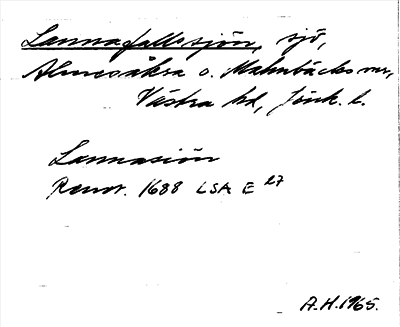 Lannafallssjön, sjö,
Almesåkra o. Malmbäcks snr,
Västra hd, Jönk. l.
Lannasiön
Renov. 1688 LSA E 27
A.H. 1965.